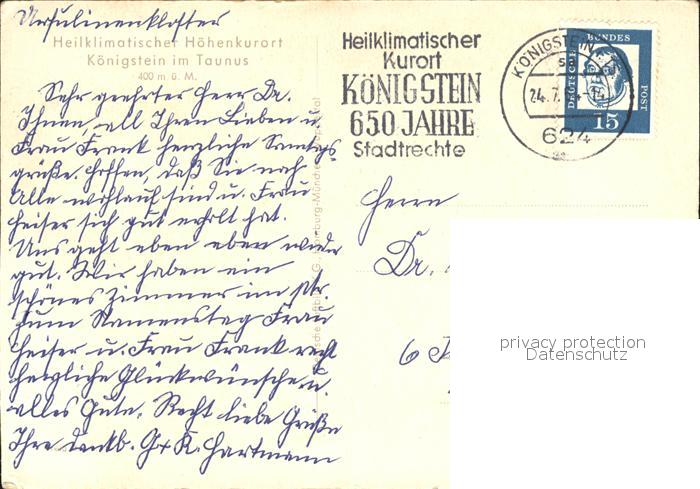 Ursulinenkloster
Heilklimatischer Höhenkurort
Königstein im Taunus
400 m ü. M.
Sehr geehrter Herr Dr.
Ihnen, all Ihren Lieben u.
Frau Frank herzliche Sonntags-
grüße. Hoffen, daß Sie noch
Alle wohlauf sind u. Frau
Heiser sich gut erholt hat.
Uns geht eben eben wieder
gut. Wir haben ein
schönes Zimmer im
Zum Namenstag Frau
Heiser u. Frau Frank recht
herzliche Glückwünsche u.
alles Gute. Recht liebe Grüße
Ihre dankb. G + K. Hartmann
Heilklimatischer
Kurort
KÖNIGSTEIN
650 JAHRE
Stadtrechte
KÖNIGSTEIN
24.7.
624
DEUTSCHE BUNDES POST
15
Herrn
Dr.
6
privacy protection
Datenschutz